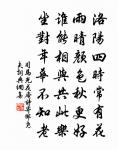 洛陽四時常有花
雨晴顏色秋更好
誰能相與共此樂
坐對年華不知老
司馬光花庵詩寄邵堯
夫